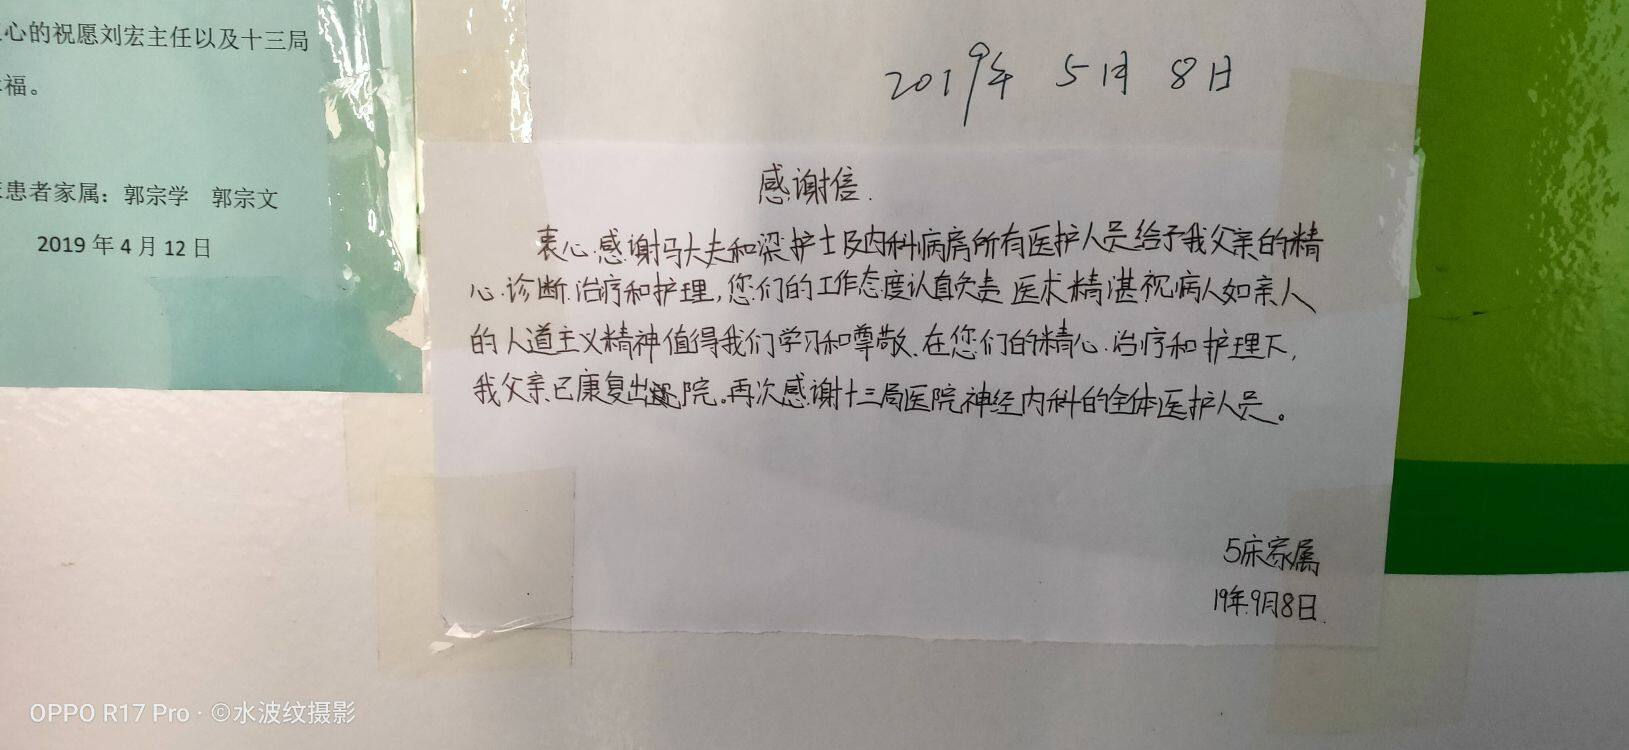 心的祝愿刘宏主任以及十三局
福。
患者家属：郭宗学 郭宗文
2019年4月12日
2019年 5月 8日
感谢信.
衷心感谢马大夫和梁护士及内科病房所有医护人员给予我父亲的精
心诊断治疗和护理,您们的工作态度认真负责 医术精湛视病人如亲人
的人道主义精神值得我们学习和尊敬.在您们的精心治疗和护理下,
我父亲已康复出院。再次感谢十三局医院神经内科的全体医护人员。
5床家属
19年.9月8日.
OPPO R17 Pro · ©水波纹摄影